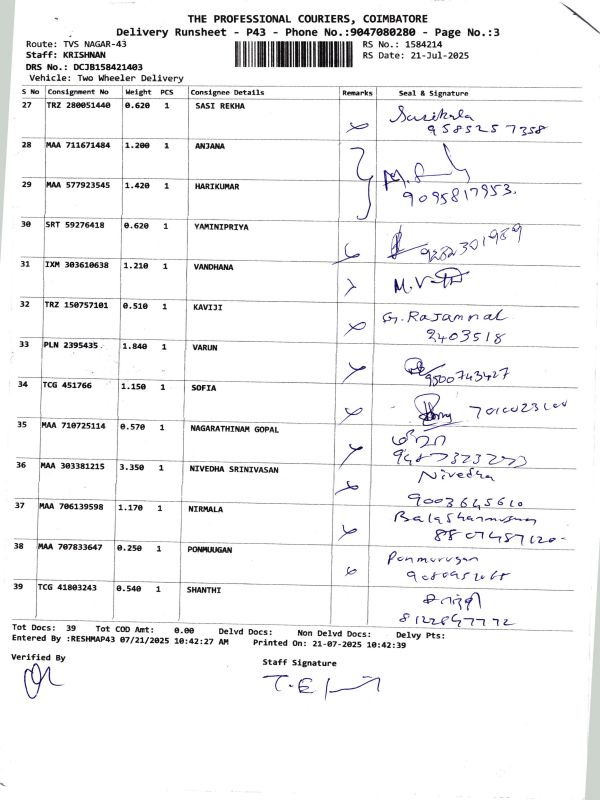 THE PROFESSIONAL COURIERS, COIMBATORE
Delivery Runsheet - P43 - Phone No.:9047080280 - Page No.:3
Route: TVS NAGAR-43 RS No.: 1584214
Staff: KRISHNAN RS Date: 21-Jul-2025
DRS No.: DCJB158421403
Vehicle: Two Wheeler Delivery
S No Consignment No Weight PCS Consignee Details Remarks Seal & Signature
27 TRZ 280051440 0.620 1 SASI REKHA Sasikala
9585257358
28 MAA 711671484 1.200 1 ANJANA
29 MAA 577923545 1.420 1 HARIKUMAR
9095817953.
30 SRT 59276418 0.620 1 YAMINIPRIYA
31 IXM 303610638 1.210 1 VANDHANA
32 TRZ 150757101 0.510 1 KAVIJI G. Rajammal
2403518
33 PLN 2395435 1.840 1 VARUN
9500743427
34 TCG 451766 1.150 1 SOFIA
35 MAA 710725114 0.570 1 NAGARATHINAM GOPAL
36 MAA 303381215 3.350 1 NIVEDHA SRINIVASAN Nivedha
9003645610
37 MAA 706139598 1.170 1 NIRMALA
38 MAA 707833647 0.250 1 PONMUUGAN Ponmurugan
39 TCG 41803243 0.540 1 SHANTHI
8122647772
Tot Docs: 39 Tot COD Amt: 0.00 Delvd Docs: Non Delvd Docs: Delvy Pts:
Entered By :RESHMAP43 07/21/2025 10:42:27 AM Printed On: 21-07-2025 10:42:39
Verified By Staff Signature